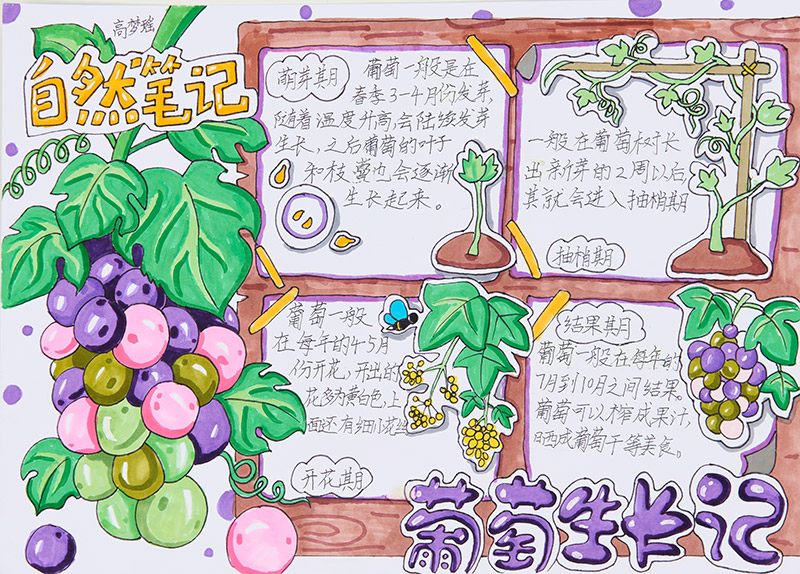 高梦瑶
自然笔记
萌芽期
葡萄一般是在
春季3-4月份发芽,
随着温度升高,会陆续发芽
生长,之后葡萄的叶子
和枝蔓也会逐渐
生长起来。
一般在葡萄树长
出新芽的2周以后
其就会进入抽梢期
抽梢期
葡萄一般
在每年的4-5月
份开花,开出的
花多为黄白色,上
面还有细小花丝
开花期
结果期
葡萄一般在每年的
7月到10月之间结果。
葡萄可以榨成果汁,
晒成葡萄干等美食。
葡萄生长记